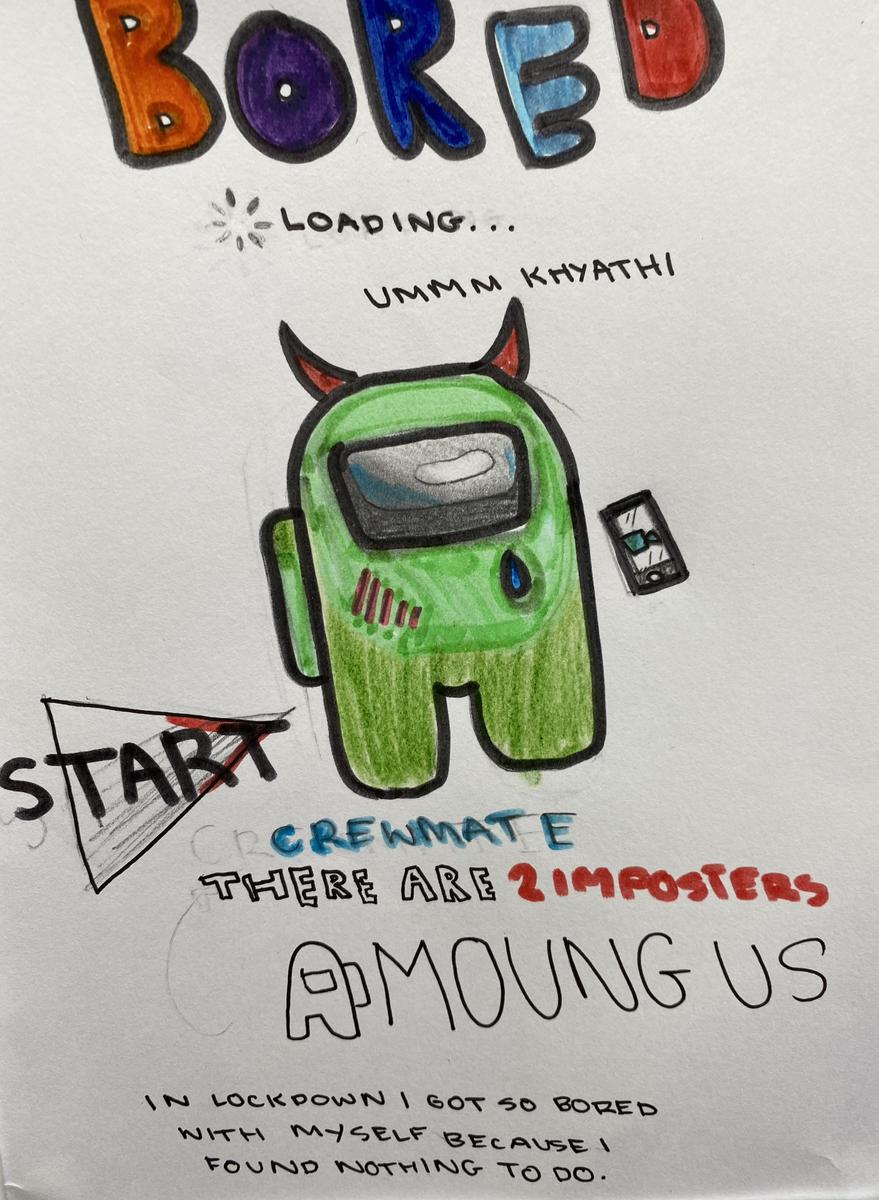 BORED
LOADING...
UMMM KHYATHI
START
CREWMATE
THERE ARE 2 IMPOSTERS
AMOUNG US
IN LOCKDOWN I GOT SO BORED
WITH MYSELF BECAUSE I
FOUND NOTHING TO DO.